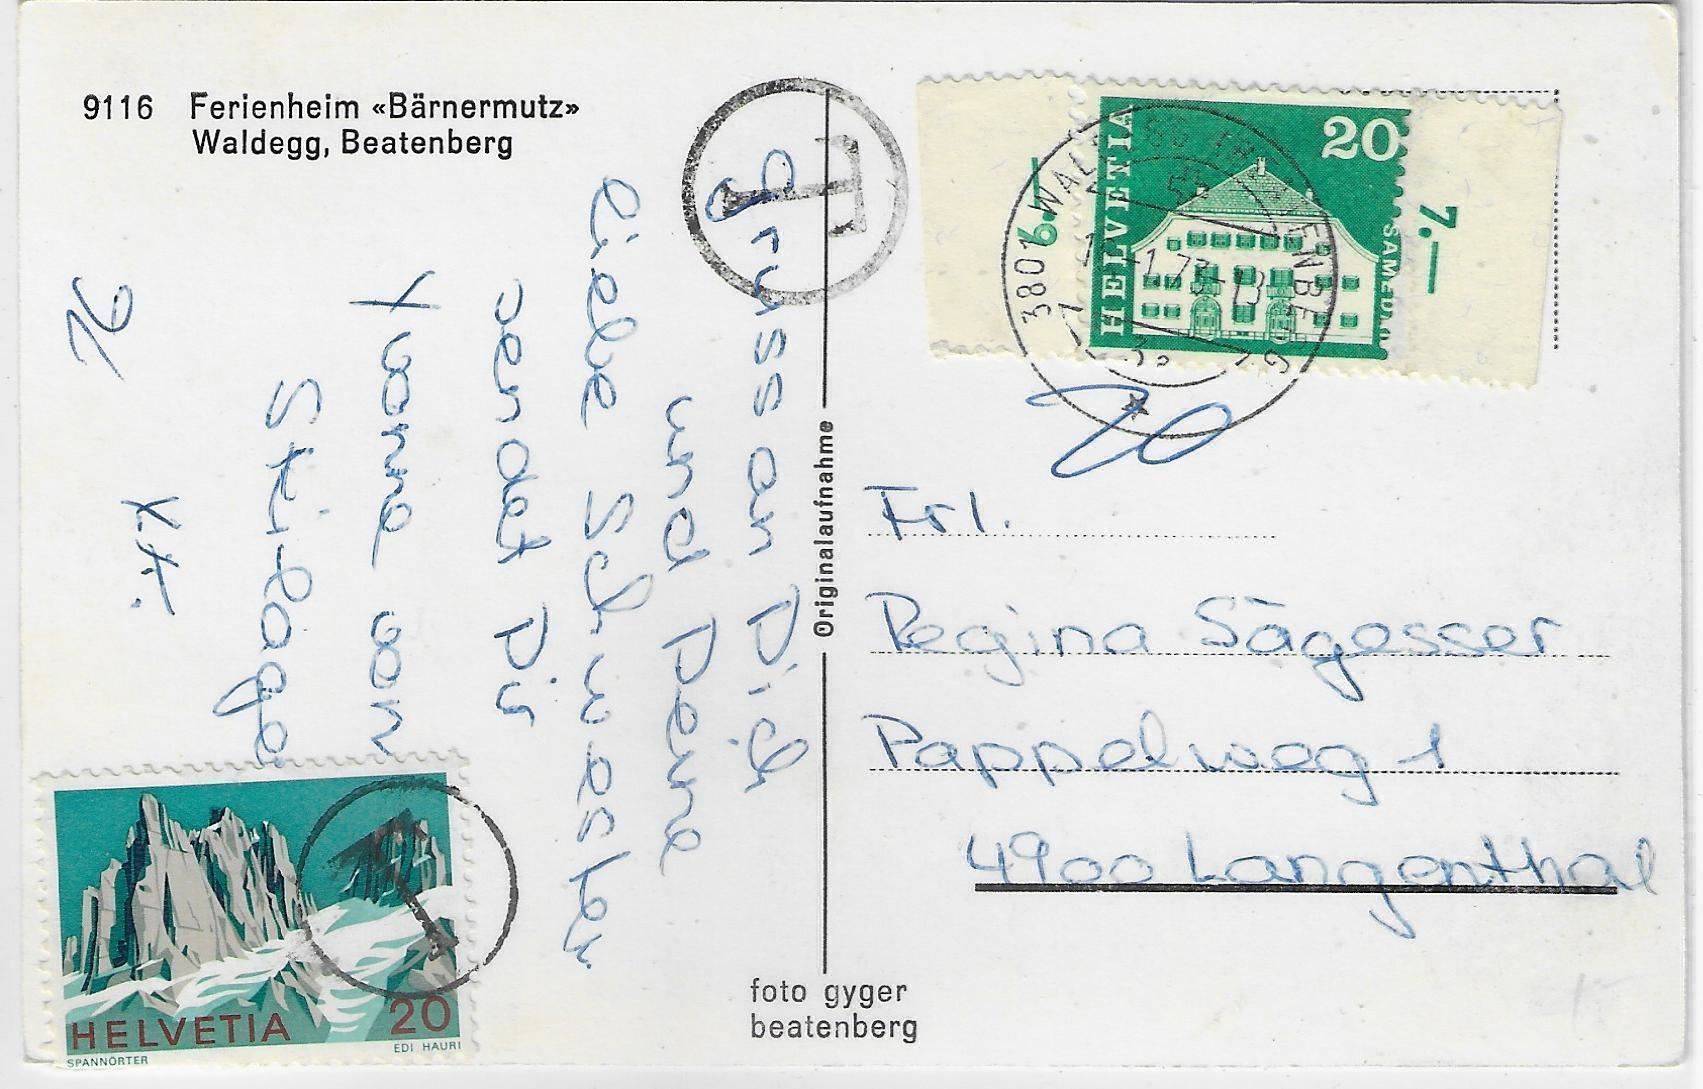 9116 Ferienheim «Bärnermutz»
Waldegg, Beatenberg
T
6.—
HELVETIA
20
SAMEDAN
7.—
3801 WALDEGG
-1.73-13
20
Gruss an Dich
und Deine
liebe Schwester
sendet Dir
Yvonne von
Ski-Lager
Originalaufnahme
Frl.
Regina Sägesser
Pappelweg 1
4900 Langenthal
T
HELVETIA 20
SPANNÖRTER
EDI HAURI
foto gyger
beatenberg